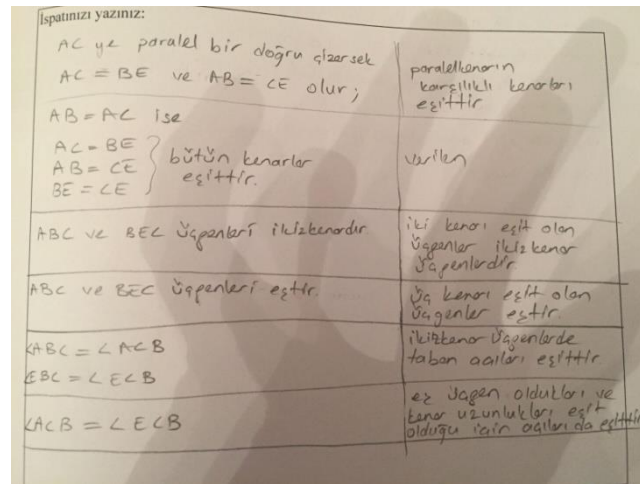 İspatınızı yazınız:
AC ye paralel bir doğru çizersek
AC = BE ve AB = CE olur;
paralelkenarın
karşılıklı kenarları
eşittir
AB = AC ise
AC = BE
AB = CE
BE = CE
bütün kenarlar
eşittir.
verilen
ABC ve BEC üçgenleri ikizkenardır.
iki kenarı eşit olan
üçgenler ikizkenar
üçgenlerdir.
ABC ve BEC üçgenleri eştir.
Üç kenarı eşit olan
üçgenler eştir.
∠ABC = ∠ACB
EBC = ∠ECB
ikizkenar üçgenlerde
taban açıları eşittir
∠ACB = ∠ECB
eş üçgen oldukları ve
kenar uzunlukları eşit
olduğu için açıları da eşittir